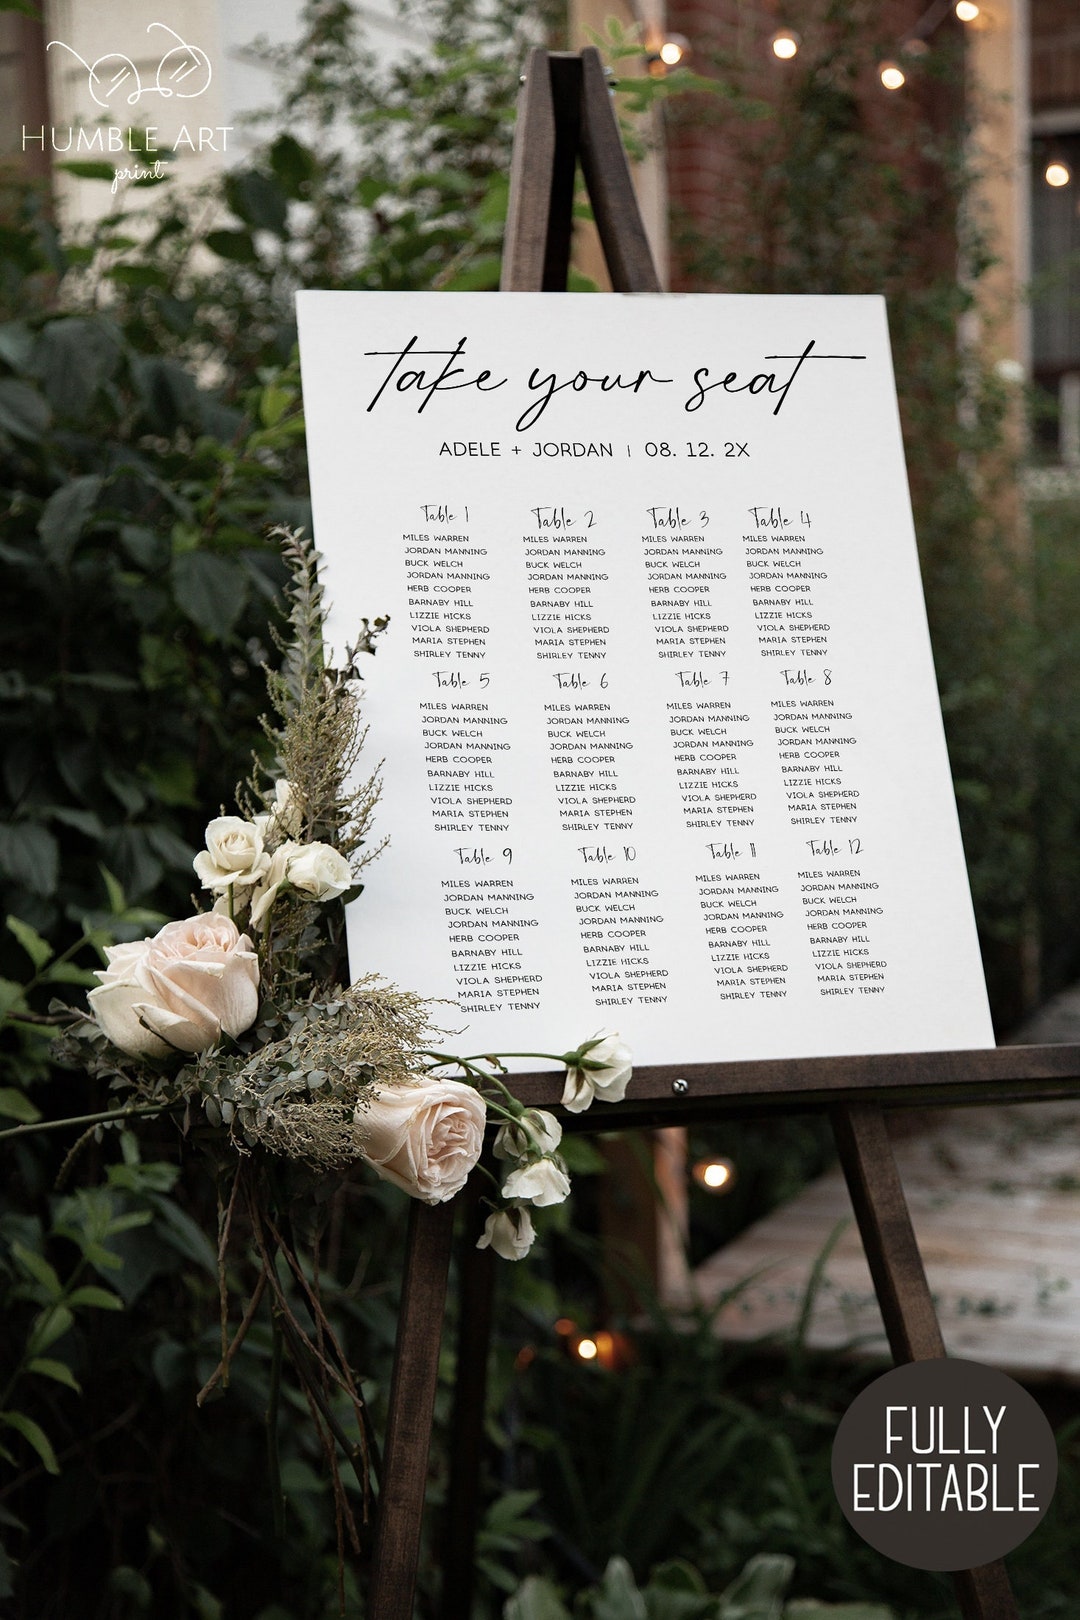 HUMBLE ART
print
take your seat
ADELE + JORDAN | 08. 12. 2X
Table 1
MILES WARREN
JORDAN MANNING
BUCK WELCH
JORDAN MANNING
HERB COOPER
BARNABY HILL
LIZZIE HICKS
VIOLA SHEPHERD
MARIA STEPHEN
SHIRLEY TENNY
Table 2
MILES WARREN
JORDAN MANNING
BUCK WELCH
JORDAN MANNING
HERB COOPER
BARNABY HILL
LIZZIE HICKS
VIOLA SHEPHERD
MARIA STEPHEN
SHIRLEY TENNY
Table 3
MILES WARREN
JORDAN MANNING
BUCK WELCH
JORDAN MANNING
HERB COOPER
BARNABY HILL
LIZZIE HICKS
VIOLA SHEPHERD
MARIA STEPHEN
SHIRLEY TENNY
Table 4
MILES WARREN
JORDAN MANNING
BUCK WELCH
JORDAN MANNING
HERB COOPER
BARNABY HILL
LIZZIE HICKS
VIOLA SHEPHERD
MARIA STEPHEN
SHIRLEY TENNY
Table 5
MILES WARREN
JORDAN MANNING
BUCK WELCH
JORDAN MANNING
HERB COOPER
BARNABY HILL
LIZZIE HICKS
VIOLA SHEPHERD
MARIA STEPHEN
SHIRLEY TENNY
Table 6
MILES WARREN
JORDAN MANNING
BUCK WELCH
JORDAN MANNING
HERB COOPER
BARNABY HILL
LIZZIE HICKS
VIOLA SHEPHERD
MARIA STEPHEN
SHIRLEY TENNY
Table 7
MILES WARREN
JORDAN MANNING
BUCK WELCH
JORDAN MANNING
HERB COOPER
BARNABY HILL
LIZZIE HICKS
VIOLA SHEPHERD
MARIA STEPHEN
SHIRLEY TENNY
Table 8
MILES WARREN
JORDAN MANNING
BUCK WELCH
JORDAN MANNING
HERB COOPER
BARNABY HILL
LIZZIE HICKS
VIOLA SHEPHERD
MARIA STEPHEN
SHIRLEY TENNY
Table 9
MILES WARREN
JORDAN MANNING
BUCK WELCH
JORDAN MANNING
HERB COOPER
BARNABY HILL
LIZZIE HICKS
VIOLA SHEPHERD
MARIA STEPHEN
SHIRLEY TENNY
Table 10
MILES WARREN
JORDAN MANNING
BUCK WELCH
JORDAN MANNING
HERB COOPER
BARNABY HILL
LIZZIE HICKS
VIOLA SHEPHERD
MARIA STEPHEN
SHIRLEY TENNY
Table 11
MILES WARREN
JORDAN MANNING
BUCK WELCH
JORDAN MANNING
HERB COOPER
BARNABY HILL
LIZZIE HICKS
VIOLA SHEPHERD
MARIA STEPHEN
SHIRLEY TENNY
Table 12
MILES WARREN
JORDAN MANNING
BUCK WELCH
JORDAN MANNING
HERB COOPER
BARNABY HILL
LIZZIE HICKS
VIOLA SHEPHERD
MARIA STEPHEN
SHIRLEY TENNY
FULLY
EDITABLE